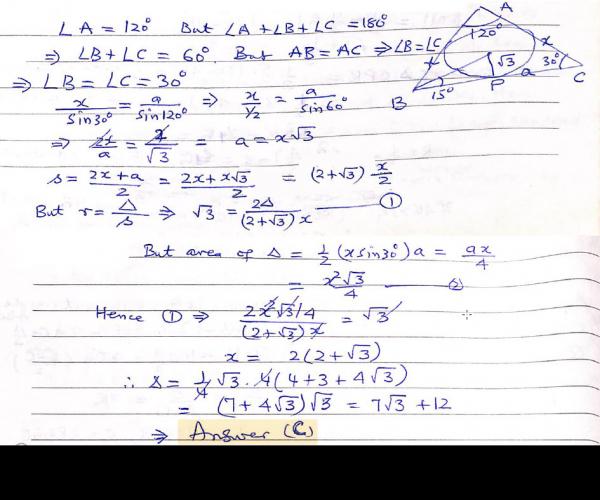 ∠A = 120° But ∠A + ∠B + ∠C = 180°
⇒ ∠B + ∠C = 60°. But AB = AC ⇒ ∠B = ∠C
⇒ ∠B = ∠C = 30°
x/sin30° = a/sin120° ⇒ x/½ = a/sin60°
⇒ 2x/a = 2/√3 = a = x√3
s = (2x + a)/2 = (2x + x√3)/2 = (2 + √3) x/2
But r = Δ/s ⇒ √3 = 2Δ/((2 + √3) x) ①
A
120°
x
x
√3
30°
B
15°
P
a
C
But area of Δ = ½ (x sin30°) a = ax/4
= x²√3/4 ②
Hence ① ⇒ (2x²√3/4)/((2 + √3) x) = √3
x = 2(2 + √3)
∴ Δ = ¼ √3 . 4 (4 + 3 + 4√3)
= (7 + 4√3) √3 = 7√3 + 12
⇒ Answer (C)